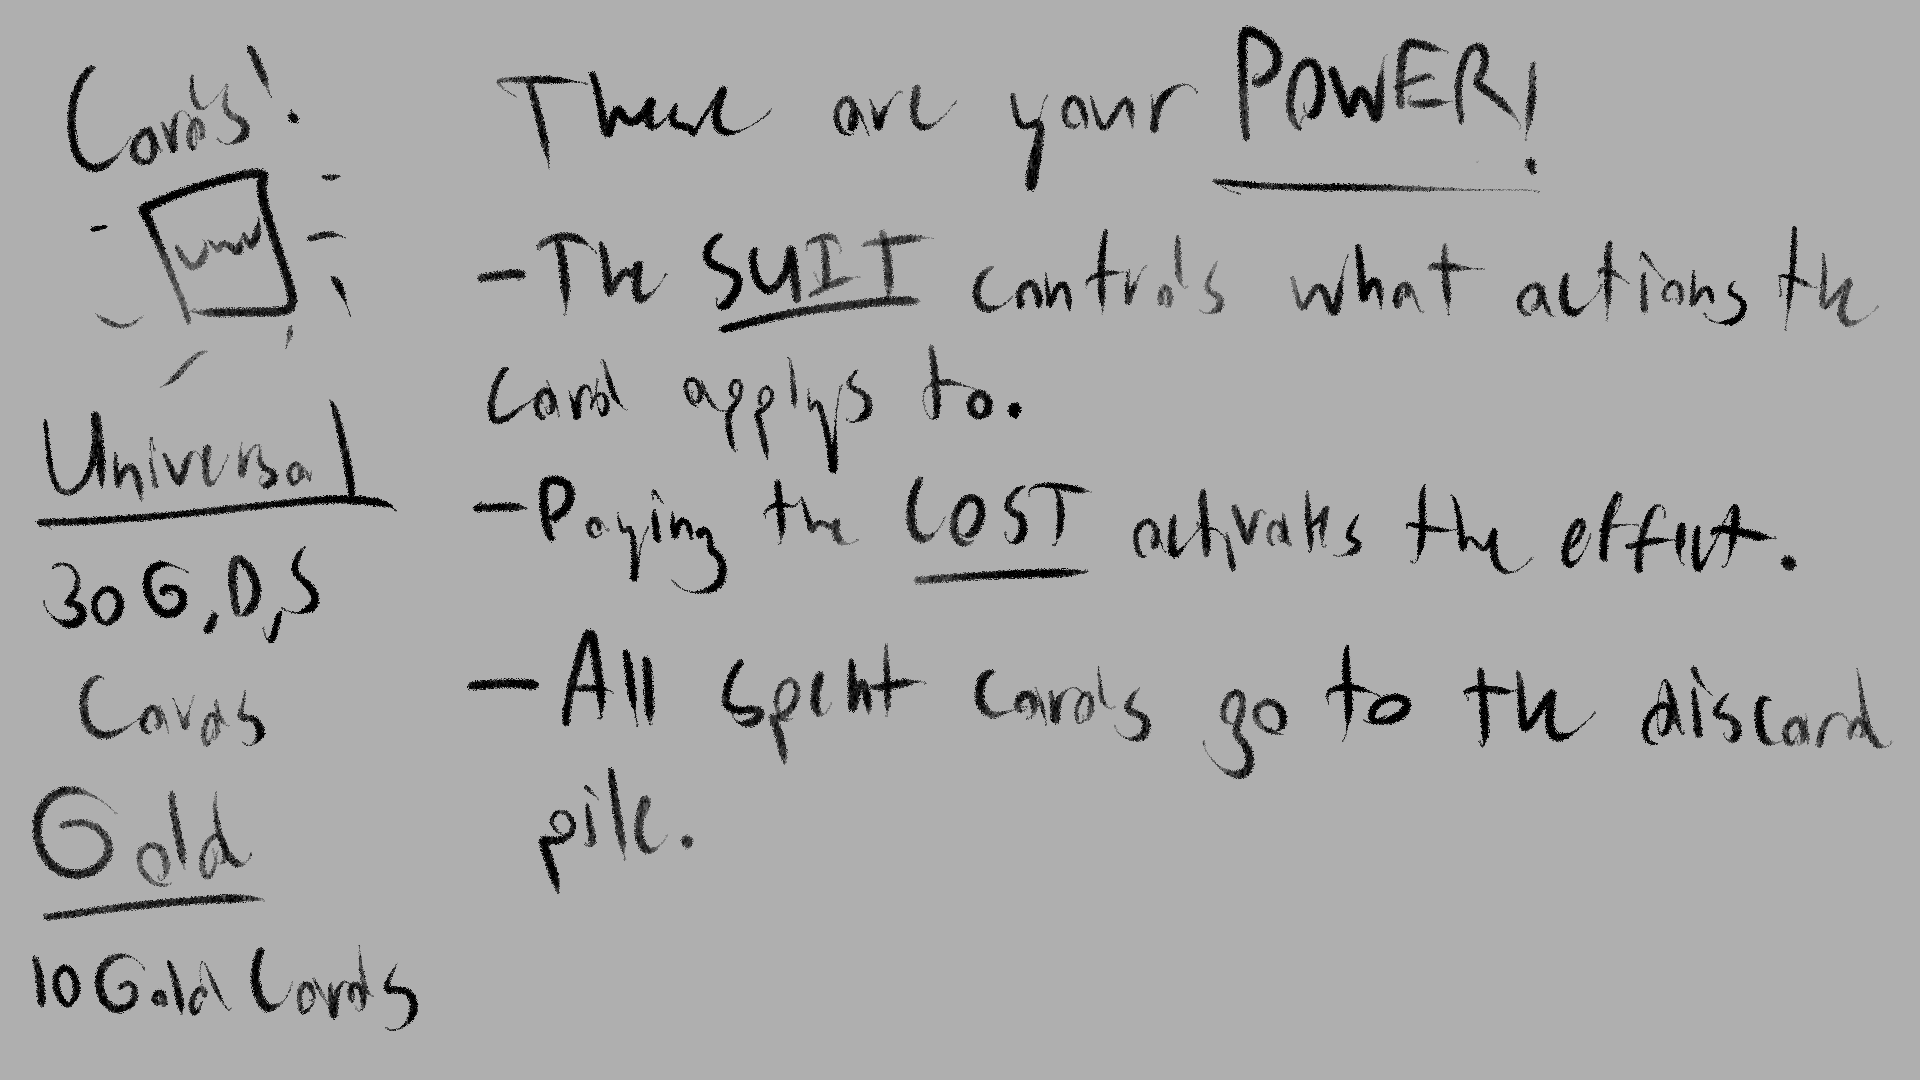 Cards!
Universal
30 G, D, S
Cards
Gold
10 Gold Cards
These are your POWER!
- The SUIT controls what actions the
card applys to.
- Paying the COST activates the effect.
- All spent cards go to the discard
pile.